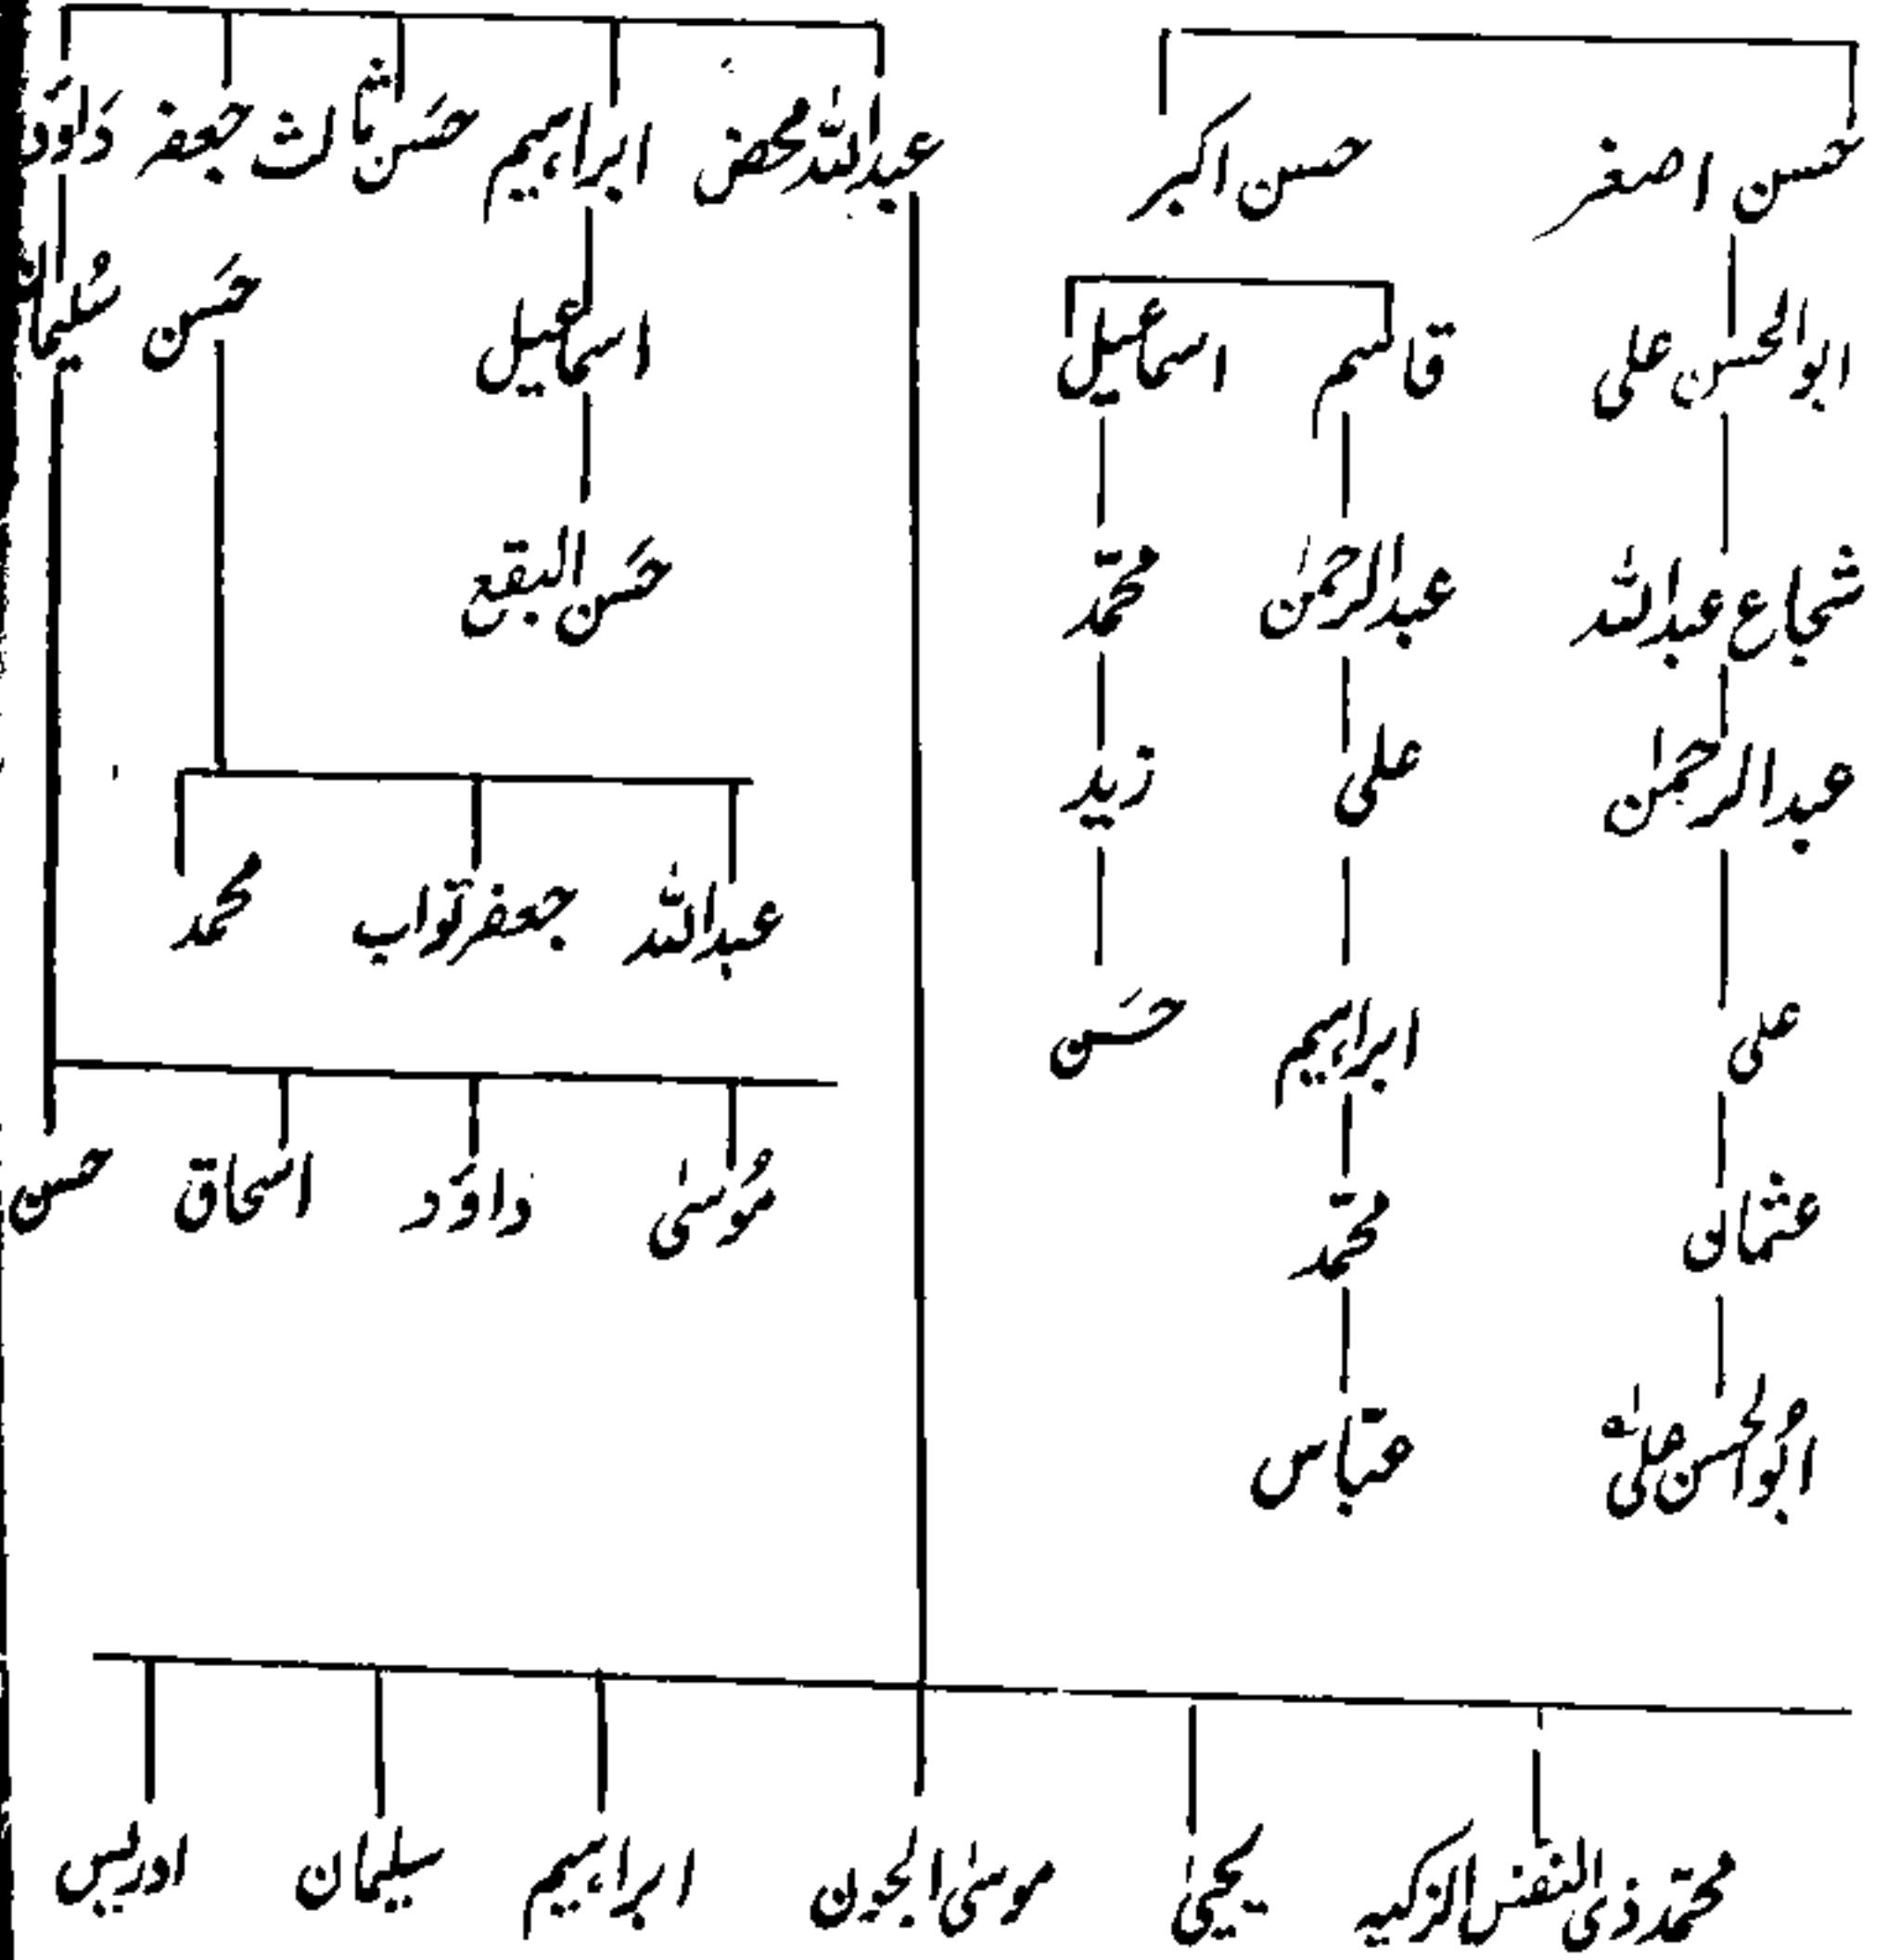 حسن اصغر حسن اکبر عبداللہ محض ابراہیم حسن ثالث جعفر داؤد
ابوالحسن علی قاسم اسماعیل اسماعیل حسن سلیمان
شجاع عبداللہ عبدالرحمٰن محمد حسن البقیع
عبدالرحمٰن علی زید
عبداللہ جعفر تواب محمد
علی ابراہیم حسن
عثمانی محمد موسیٰ داؤد اسحاق حسن
ابوالحسن علی عباس
محمد ذی النفس الزکیہ یحییٰ موسیٰ الجون ابراہیم سلیمان ادریس